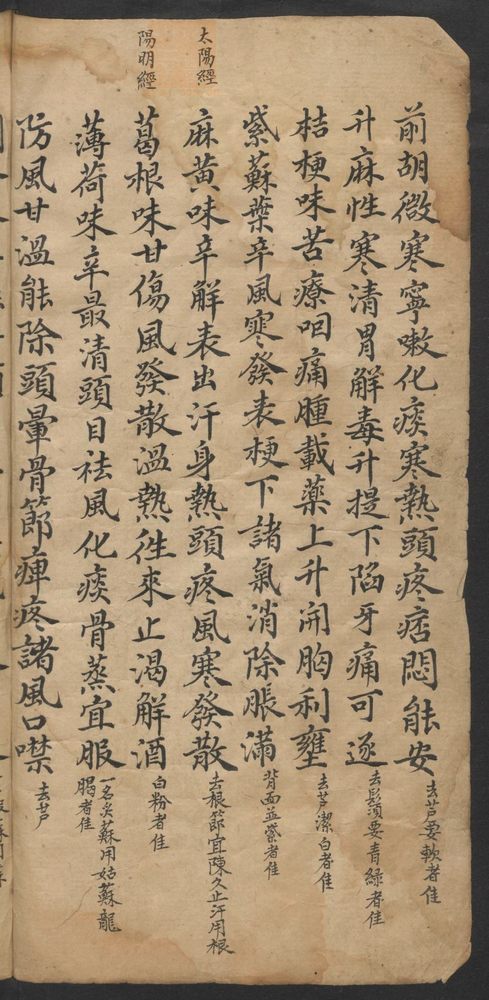 前胡微寒寧嗽化痰寒熱頭疼痞悶能安
去芦要軟者佳
升麻性寒清胃解毒升提下陷牙痛可逐
去鬚要青綠者佳
桔梗味苦療咽痛腫載藥上升開胸利壅
去芦潔白者佳
紫蘇葉辛風寒發表梗下諸氣消除脹滿
背面並紫者佳
太陽經
麻黃味辛解表出汗身熱頭疼風寒發散
去根節宜陳久止汗用根
陽明經
葛根味甘傷風發散溫熱徃來止渴解酒
白粉者佳
薄荷味辛最清頭目祛風化痰骨蒸宜服
一名 蘇用姑蘇龍
腦者佳
防風甘溫能除頭暈骨節痺疼諸風口噤
去芦